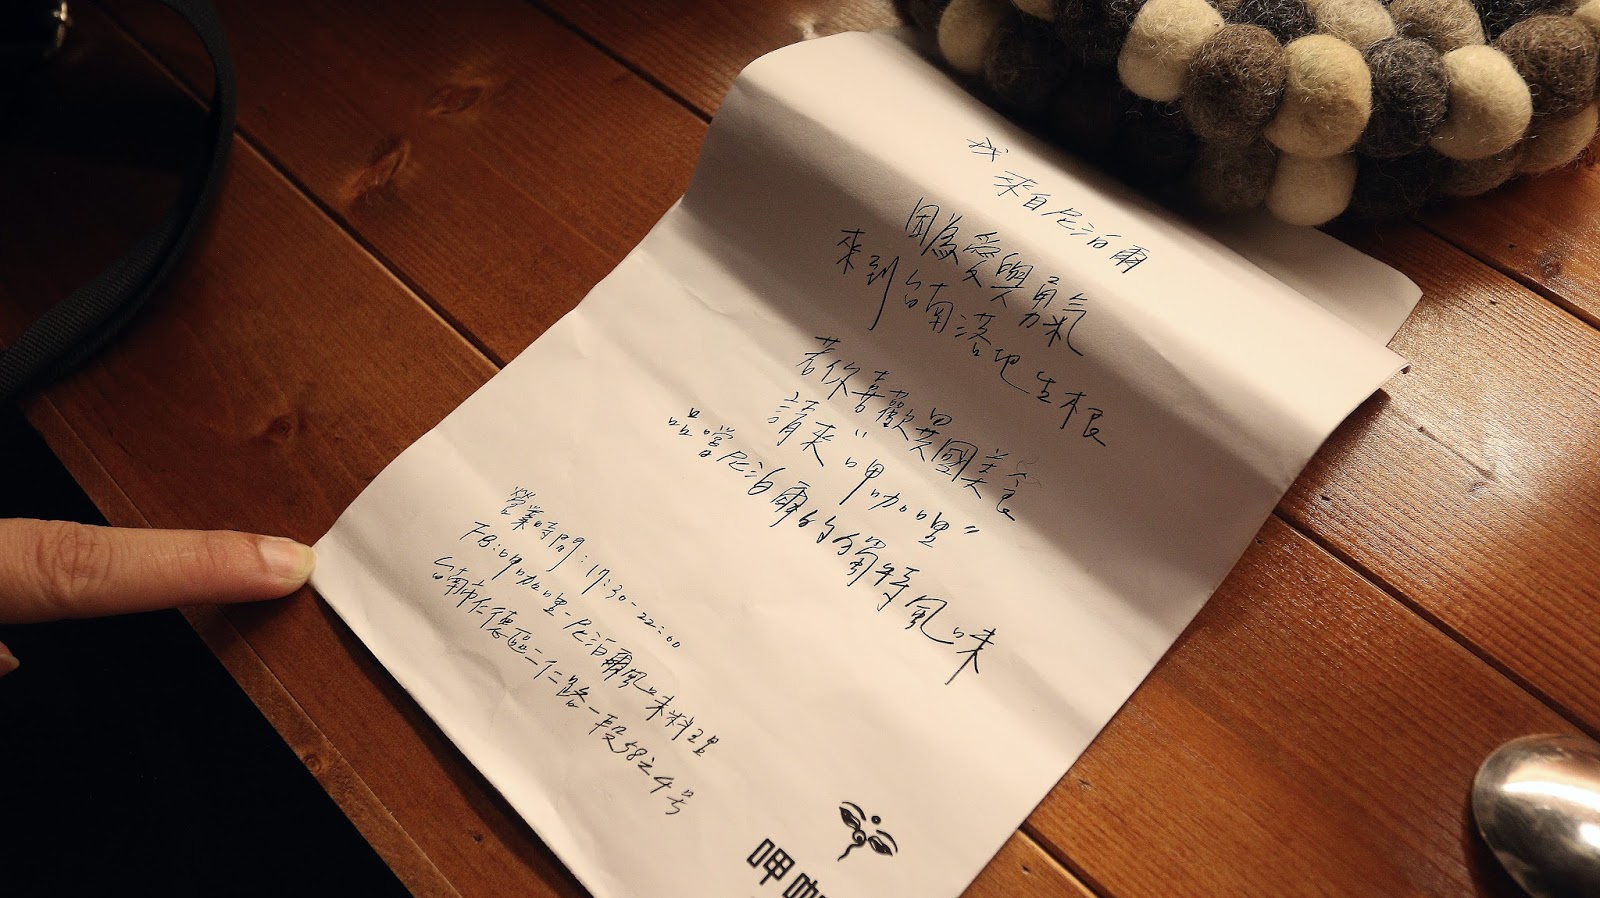 我
來自尼泊爾
因為愛與勇氣
來到台南落地生根
若你喜歡異國美食
請來"呷咖哩"
品嚐尼泊爾的獨特風味
營業時間:17:30-22:00
FB:呷咖哩-尼泊爾風味料理
台南市仁德區二仁路一段58之4号
呷咖